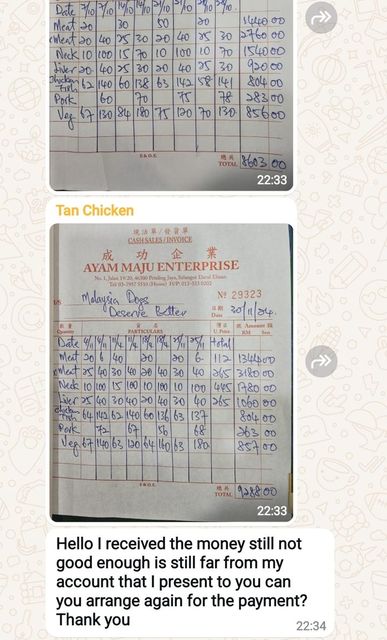 Date
Meat 20 30 50 20 1440 00
Meat 20 40 25 30 20 40 25 30 2760 00
Neck 10 100 15 70 10 100 10 70 1540 00
Liver 20 40 25 30 20 40 25 30 920 00
chicken
Fish 62 140 60 138 63 142 58 141 804 00
Pork 60 70 75 78 283 00
Veg 67 130 84 180 75 120 70 130 856 00
E & O.E.
總共
TOTAL 8603 00
22:33
Tan Chicken
現沽單/發貨單
CASH SALES / INVOICE
成功企業
AYAM MAJU ENTERPRISE
No. 1, Jalan 19/20, 46300 Petaling Jaya, Selangor Darul Ehsan
M/S Malaysia Dogs
Deserve Better
Nº 29323
日期
Date 30/11/24.
數量
Quantity
PARTICULARS
U. Price
Amount
RM Sen
Date total
Meat 20 6 40 20 20 6 112 1344 00
Meat 25 40 30 40 20 40 30 40 265 3180 00
Neck 10 100 15 100 10 100 10 100 445 1780 00
Liver 25 40 30 40 20 40 30 40 265 1060 00
chicken
Fish 64 142 62 140 60 136 63 137 804 00
Pork 72 67 56 68 263 00
Veg 67 140 63 120 64 160 63 180 857 00
E & O.E.
總共
TOTAL 9288 00
22:33
Hello I received the money still not
good enough is still far from my
account that I present to you can
you arrange again for the payment?
Thank you
22:34